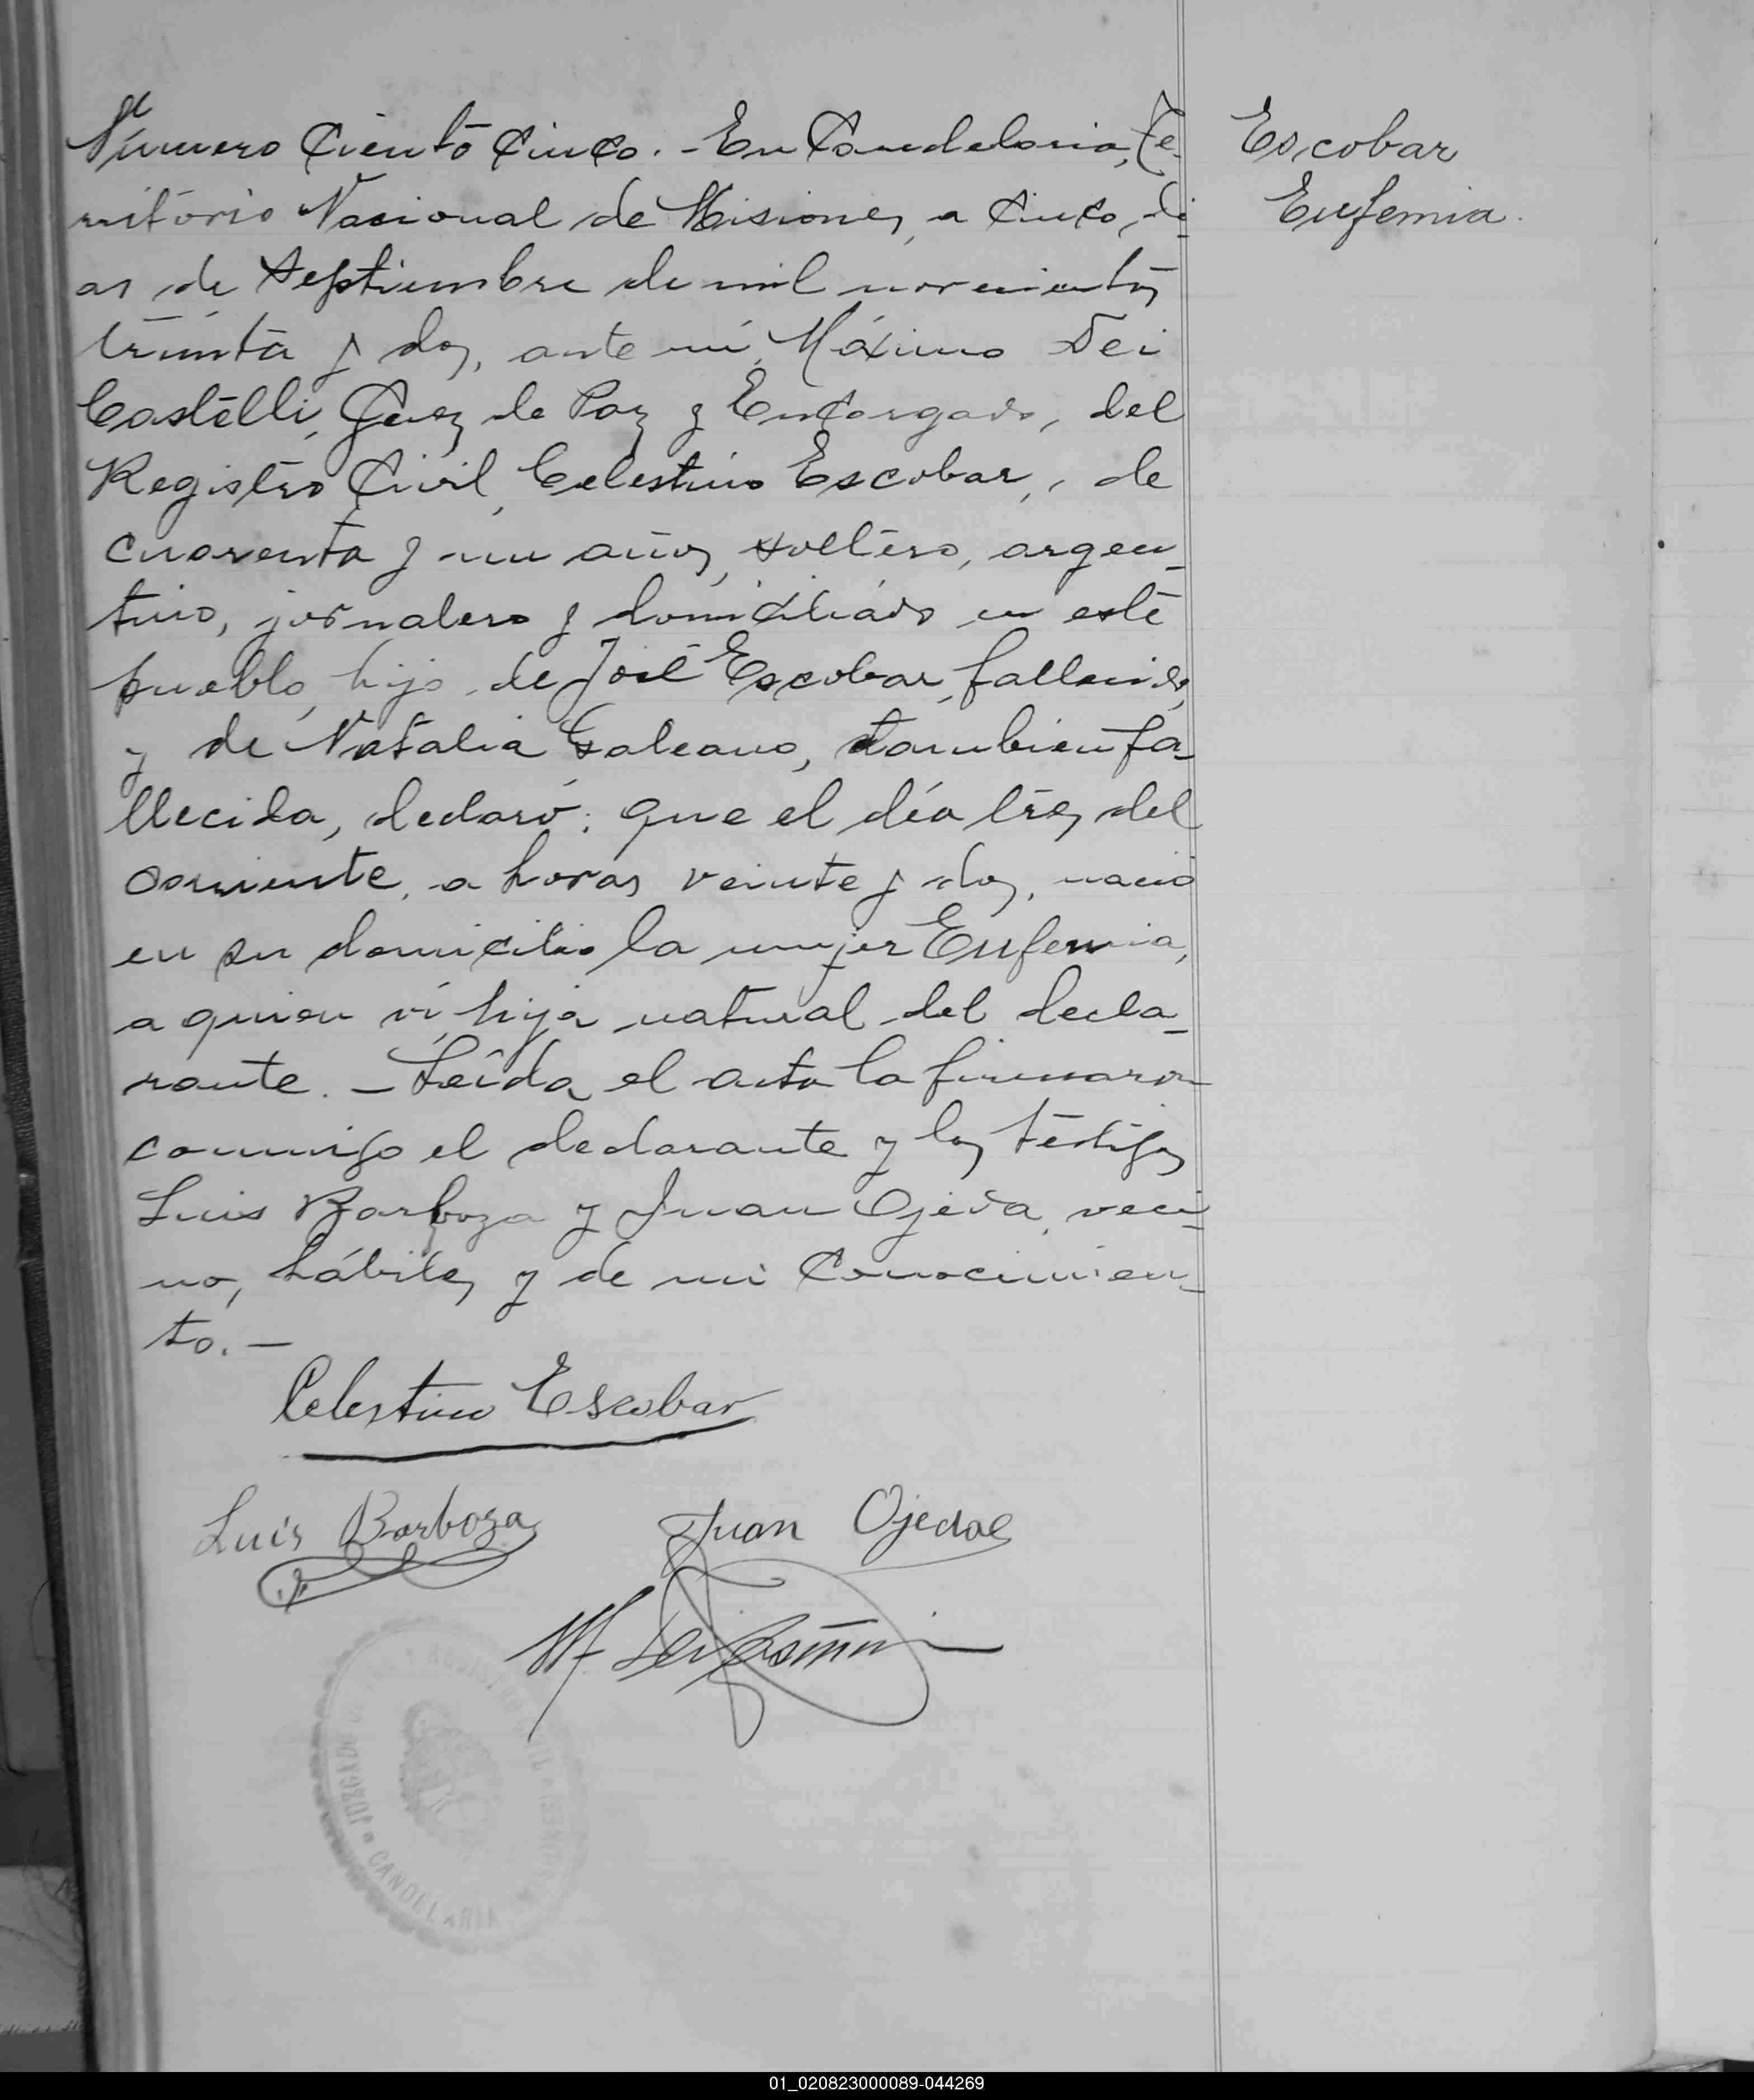 Número Ciento Cinco. - En Candelaria, Te-
rritorio Nacional de Misiones, a Cinco, dí-
as de Septiembre de mil novecientos
treinta y dos, ante mí, Máximo Dei
Castelli, Juez de Paz y Encargado, del
Registro Civil, Celestino Escobar, de
cuarenta y un años, soltero, argen-
tino, jornalero y domiciliado en este
pueblo, hijo de José Escobar, fallecido,
y de Natalia Galeano, tambien fa-
llecida, declaró: que el día tres del
corriente, a horas veinte y dos, nació
en su domicilio la mujer Eufemia,
a quien ví, hija natural del decla-
rante. - Leída el acta la firmaron
conmigo el declarante y los testigos
Luis Barboza y Juan Ojeda, veci-
nos, hábiles y de mi Conocimien-
to. -
Escobar
Eufemia.
Celestino Escobar
Luis Barboza
Juan Ojeda
JUZGADO DE PAZ Y REGISTRO CIVIL
CANDELARIA
01_020823000089-044269